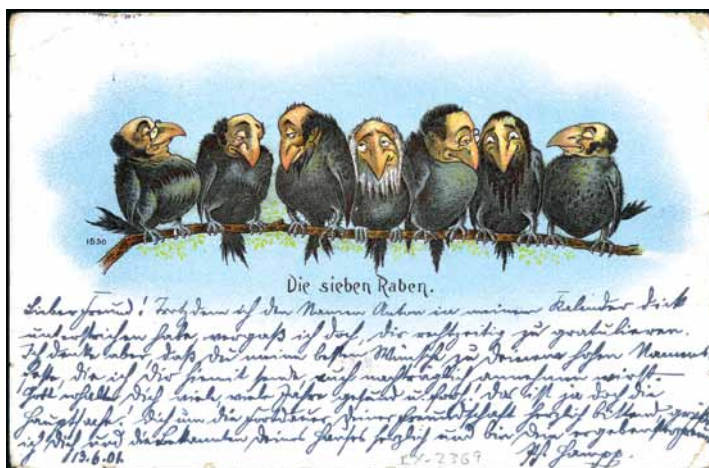 1530
Die sieben Raben.
Lieber Freund! Trotzdem ich den Namen Anton in meinem Kalender dick
unterstrichen habe, vergaß ich doch, dir rechtzeitig zu gratulieren.
Ich denke aber daß Du meine besten Wünsche zu Deinem hohen Namens
feste, die ich Dir hiemit sende, auch nachträglich annehmen wirst.
Gott erhalte Dich viele, viele Jahre gesund u. froh! das ist ja doch die
Hauptsache! Dich um die Fortdauer Deiner Freundschaft herzlich bittend, grüßt
ich Dich und die Bekannten deines Hauses herzlich und bin Dein ergebenster
13.6.01.
IX-2369